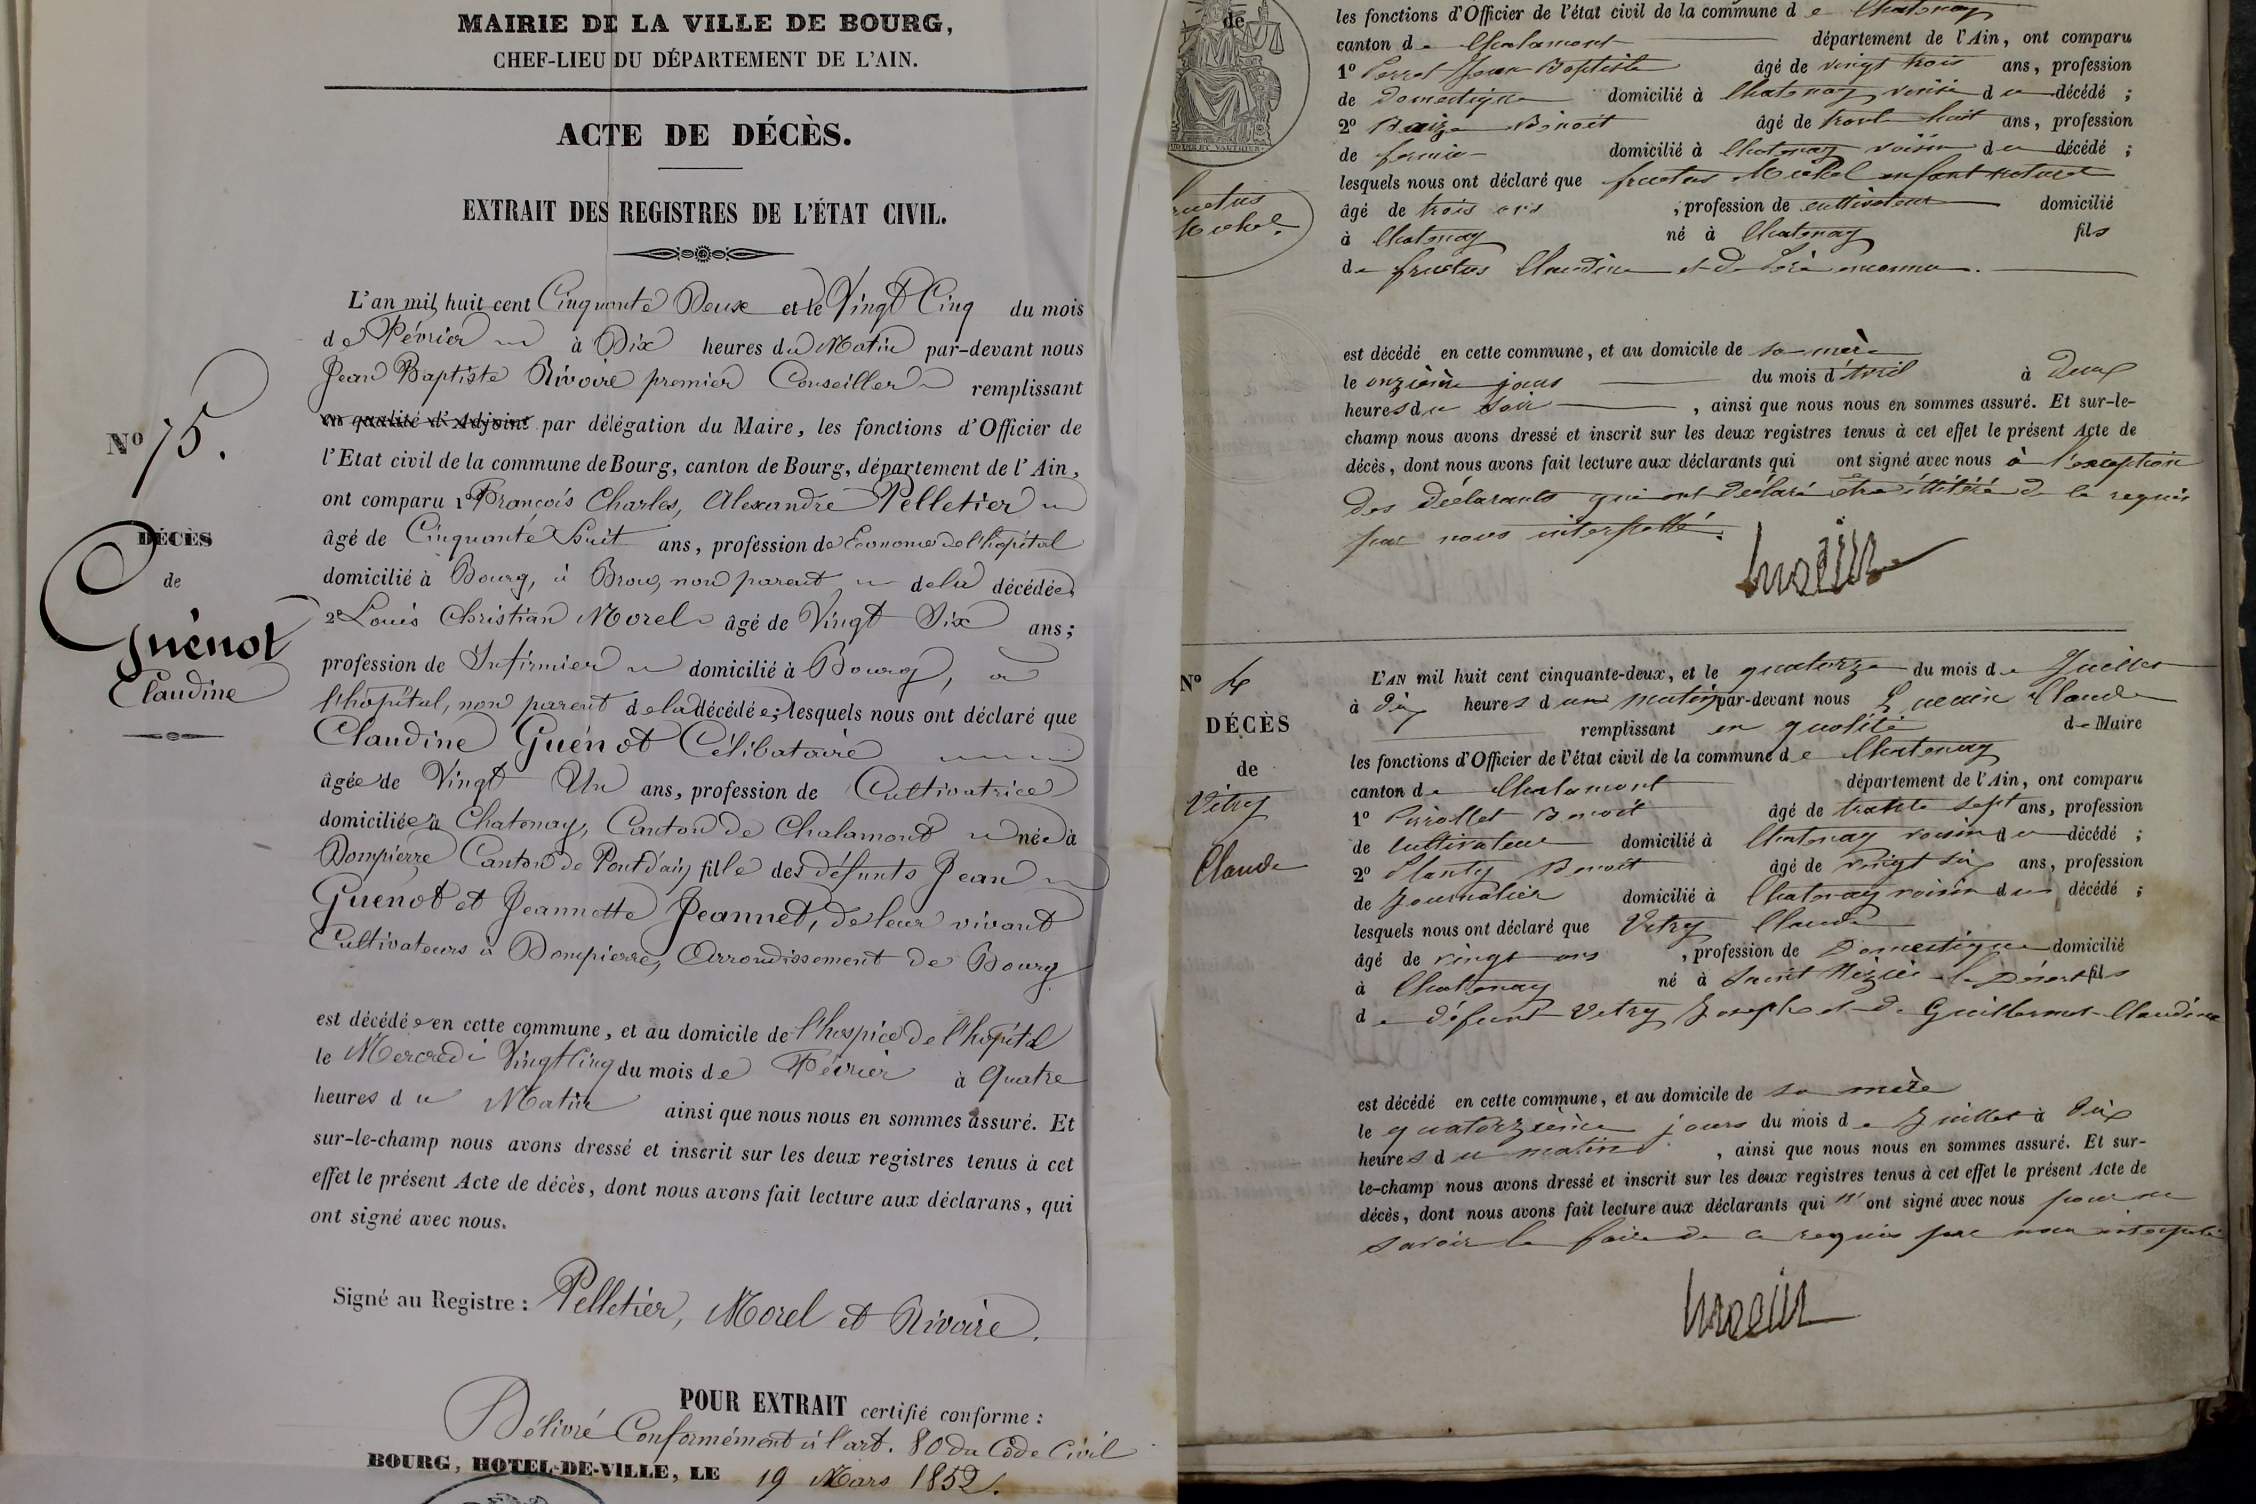 MAIRIE DE LA VILLE DE BOURG,
CHEF-LIEU DU DÉPARTEMENT DE L'AIN.
ACTE DE DÉCÈS.
EXTRAIT DES REGISTRES DE L'ÉTAT CIVIL.
N° 75.
DÉCÈS
de
Guénot
Claudine
L'an mil huit cent Cinquante Deux et le Vingt Cinq du mois
de Février à Dix heures du Matin par-devant nous
Jean Baptiste Rivoire premier Conseiller remplissant
en qualité d'Adjoint par délégation du Maire, les fonctions d'Officier de
l'Etat civil de la commune de Bourg, canton de Bourg, département de l'Ain,
ont comparu 1° François Charles, Alexandre Pelletier
âgé de Cinquante huit ans, profession de Econome de l'hôpital
domicilié à Bourg, à Brou, non parent de la décédée,
2° Louis Christian Morel âgé de Vingt Six ans;
profession de Infirmier domicilié à Bourg, à
l'hôpital, non parent de la décédée; lesquels nous ont déclaré que
Claudine Guénot Célibataire
âgée de Vingt Un ans, profession de Cultivatrice
domiciliée à Chatenay, Canton de Chalamont née à
Dompierre Canton de Pontdain, fille des défunts Jean
Guénot et Jeannette Jeannet, de leur vivant
Cultivateurs à Dompierre, Arrondissement de Bourg
est décédée en cette commune, et au domicile de l'hospice de l'hôpital
le Mercredi Vingt Cinq du mois de Février à Quatre
heures du Matin ainsi que nous nous en sommes assuré. Et
sur-le-champ nous avons dressé et inscrit sur les deux registres tenus à cet
effet le présent Acte de décès, dont nous avons fait lecture aux déclarans, qui
ont signé avec nous.
Signé au Registre : Pelletier, Morel et Rivoire.
POUR EXTRAIT certifié conforme :
Délivré Conformément à l'art. 80 du Code Civil
BOURG, HOTEL-DE-VILLE, LE 19 Mars 1852.
de
les fonctions d'Officier de l'état civil de la commune de Chatenay
canton de Chalamont département de l'Ain, ont comparu
1° Perret Jean Baptiste âgé de vingt trois ans, profession
de domestique domicilié à Chatenay, voisin du décédé ;
2° Benoit âgé de trente huit ans, profession
de fermier domicilié à Chatenay voisin du décédé ;
lesquels nous ont déclaré que fructus Michel enfant naturel
âgé de trois ans , profession de cultivateur domicilié
à Chatenay né à Chatenay fils
de fructus Claudine et de Père inconnu.
est décédé en cette commune, et au domicile de sa mère
le onzième jour du mois d'Avril à Deux
heures du soir , ainsi que nous nous en sommes assuré. Et sur-le-
champ nous avons dressé et inscrit sur les deux registres tenus à cet effet le présent Acte de
décès, dont nous avons fait lecture aux déclarants qui ont signé avec nous à l'exception
des déclarants qui ont déclaré être illitéré de le requis
par nous interpellé.
N° 4
DÉCÈS
de
Vitry
Claude
L'AN mil huit cent cinquante-deux, et le quatorze du mois de Juillet
à dix heures du matin par-devant nous Claude
remplissant en qualité de Maire
les fonctions d'Officier de l'état civil de la commune de Chatenay
canton de Chalamont département de l'Ain, ont comparu
1° Pirollet Benoit âgé de trente sept ans, profession
de Cultivateur domicilié à Chatenay voisin du décédé ;
2° Planty Benoit âgé de vingt six ans, profession
de journalier domicilié à Chatenay voisin du décédé ;
lesquels nous ont déclaré que Vitry Claude
âgé de vingt ans , profession de Domestique domicilié
à Chatenay né à Saint Nizier le Désert fils
de défunt Vitry Joseph et de Guillermet Claudine
est décédé en cette commune, et au domicile de sa mère
le quatorzième jour du mois de Juillet à dix
heures du matin , ainsi que nous nous en sommes assuré. Et sur-
le-champ nous avons dressé et inscrit sur les deux registres tenus à cet effet le présent Acte de
décès, dont nous avons fait lecture aux déclarants qui n'ont signé avec nous pour ne
savoir le faire de ce requis par nous interpellé